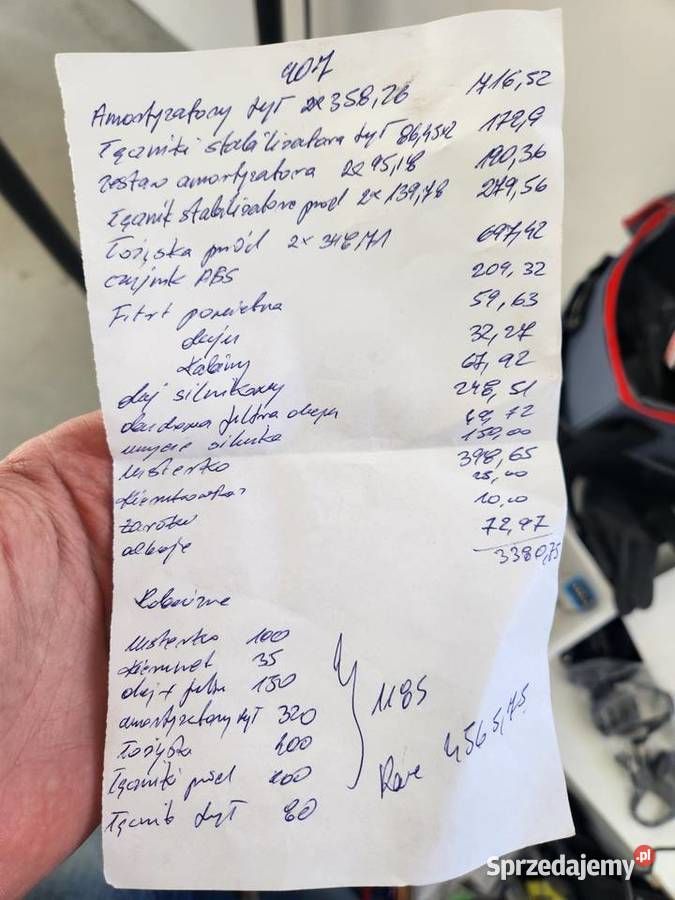 407
Amortyzatory tył 2x 358,26 716,52
Łączniki stabilizatora tył 86,45x2 172,9
zestaw amortyzatora 2x95,18 190,36
Łącznik stabilizatora przód 2x 139,78 279,56
Łożyska przód 2x 348,71 697,42
czujnik ABS 209,32
Filtr powietrza 59,63
oleju 32,27
kabiny 67,92
olej silnikowy 248,51
obudowa filtra oleju 49,72
mycie silnika 150,00
lusterko 398,65
kierunkowskaz 25,00
żarówki 10,00
odboje 72,97
3380,75
Robocizna
lusterko 100
kierunek 35
olej + filtr 150
amortyzatory tył 320
Łożyska 400
Łączniki przód 100
Łącznik tył 80
1185
Raze 4565,75
Sprzedajemy.pl